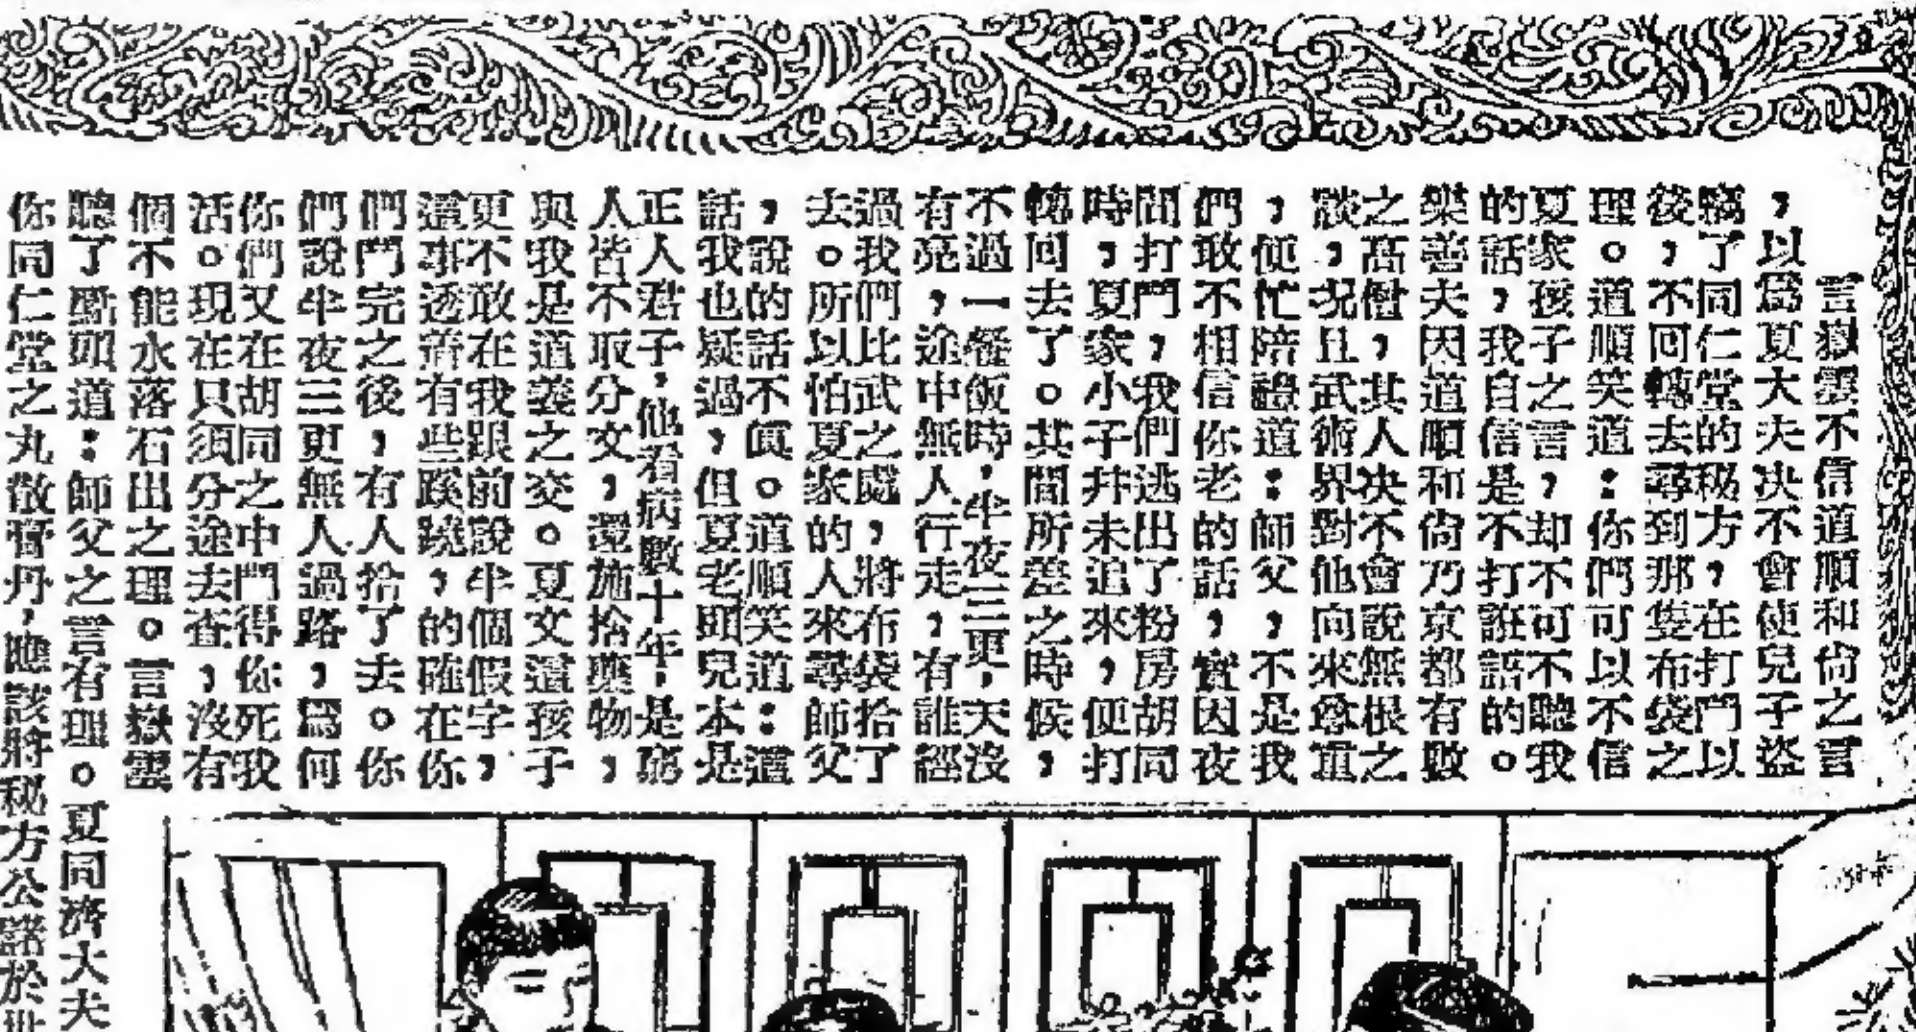 言嶽雲不信道順和尙之言
，以爲夏大夫決不會使兒子盜
竊了同仁堂的秘方，在打鬥以
後，不回轉去尋到那隻布袋之
理。道順笑道：你們可以不信
夏家孩子之言，却不可不聽我
的話，我自信是不打誑語的。
樂善夫因道順和尙乃京都有數
之高僧，其人决不會說無根之
談，况且武術界對他向來尊重
，便忙陪證道：師父，不是我
們敢不相信你老的話，實因夜
間打鬥，我們逃出了粉房胡同
時，夏家小子幷未追來，便打
轉回去了。其間所差之時候，
不過一餐飯時，半夜三更，天沒
有亮，途中無人行走，有誰經
過我們比武之處，將布袋拾了
去。所以怕夏家的人來尋師父
，說的話不眞。道順笑道：這
話我也疑過，但夏老頭兒本是
正人君子，他看病數十年，是窮
人皆不取分文，還施捨藥物，
與我是道義之交。夏文這孩子
更不敢在我跟前說半個假字，
這事透着有些蹊蹺，的確在你
們鬥完之後，有人拾了去。你
們說半夜三更無人過路，爲何
你們又在胡同之中鬥得你死我
活。現在只須分途去查，沒有
個不能水落石出之理。言嶽雲
聽了點頭道：師父之言有理。夏同濟大夫
你同仁堂之丸散膏丹，應該將秘方公諸於世